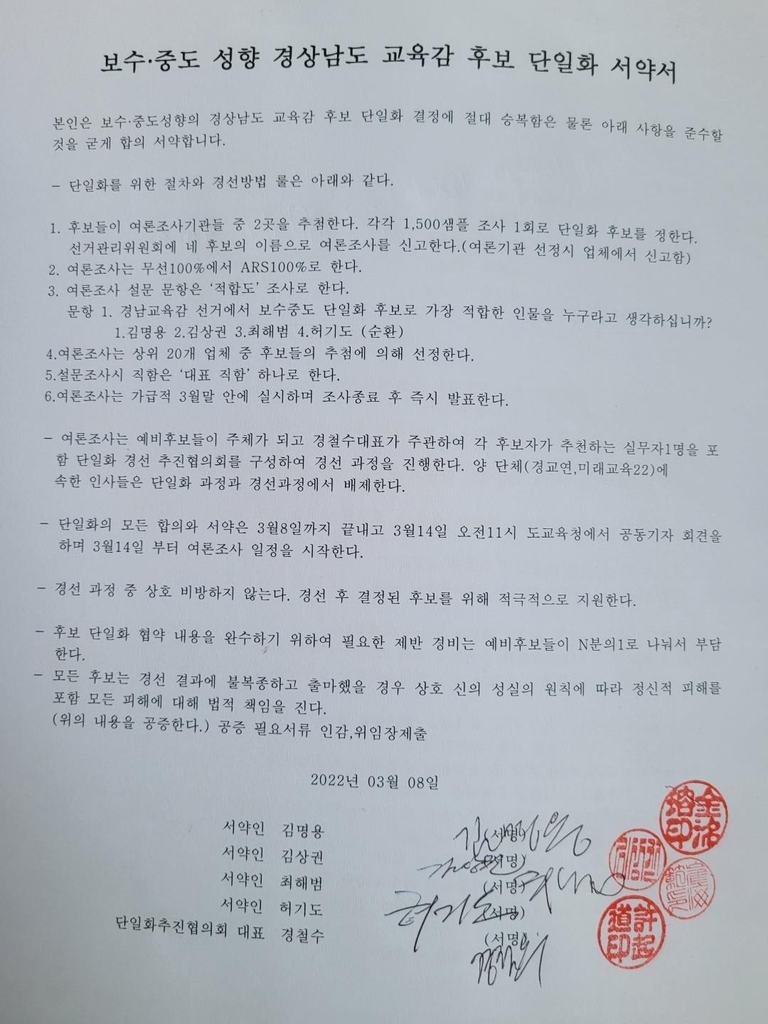 보수·중도 성향 경상남도 교육감 후보 단일화 서약서
본인은 보수·중도성향의 경상남도 교육감 후보 단일화 결정에 절대 승복함은 물론 아래 사항을 준수할
것을 굳게 합의 서약합니다.
- 단일화를 위한 절차와 경선방법 룰은 아래와 같다.
1. 후보들이 여론조사기관들 중 2곳을 추첨한다. 각각 1,500샘플 조사 1회로 단일화 후보를 정한다.
선거관리위원회에 네 후보의 이름으로 여론조사를 신고한다.(여론기관 선정시 업체에서 신고함)
2. 여론조사는 무선100%에서 ARS100%로 한다.
3. 여론조사 설문 문항은 '적합도' 조사로 한다.
문항 1. 경남교육감 선거에서 보수중도 단일화 후보로 가장 적합한 인물을 누구라고 생각하십니까?
1.김명용 2.김상권 3.최해범 4.허기도 (순환)
4.여론조사는 상위 20개 업체 중 후보들의 추첨에 의해 선정한다.
5.설문조사시 직함은 '대표 직함' 하나로 한다.
6.여론조사는 가급적 3월말 안에 실시하며 조사종료 후 즉시 발표한다.
- 여론조사는 예비후보들이 주체가 되고 경철수대표가 주관하여 각 후보자가 추천하는 실무자1명을 포
함 단일화 경선 추진협의회를 구성하여 경선 과정을 진행한다. 양 단체(경교연,미래교육22)에
속한 인사들은 단일화 과정과 경선과정에서 배제한다.
- 단일화의 모든 합의와 서약은 3월8일까지 끝내고 3월14일 오전11시 도교육청에서 공동기자 회견을
하며 3월14일 부터 여론조사 일정을 시작한다.
- 경선 과정 중 상호 비방하지 않는다. 경선 후 결정된 후보를 위해 적극적으로 지원한다.
- 후보 단일화 협약 내용을 완수하기 위하여 필요한 제반 경비는 예비후보들이 N분의1로 나눠서 부담
한다.
- 모든 후보는 경선 결과에 불복종하고 출마했을 경우 상호 신의 성실의 원칙에 따라 정신적 피해를
포함 모든 피해에 대해 법적 책임을 진다.
(위의 내용을 공증한다.) 공증 필요서류 인감,위임장제출
2022년 03월 08일
서약인 김명용 (서명)
서약인 김상권 (서명)
서약인 최해범 (서명)
서약인 허기도 (서명) 허기도
단일화추진협의회 대표 경철수 (서명)
許起道印